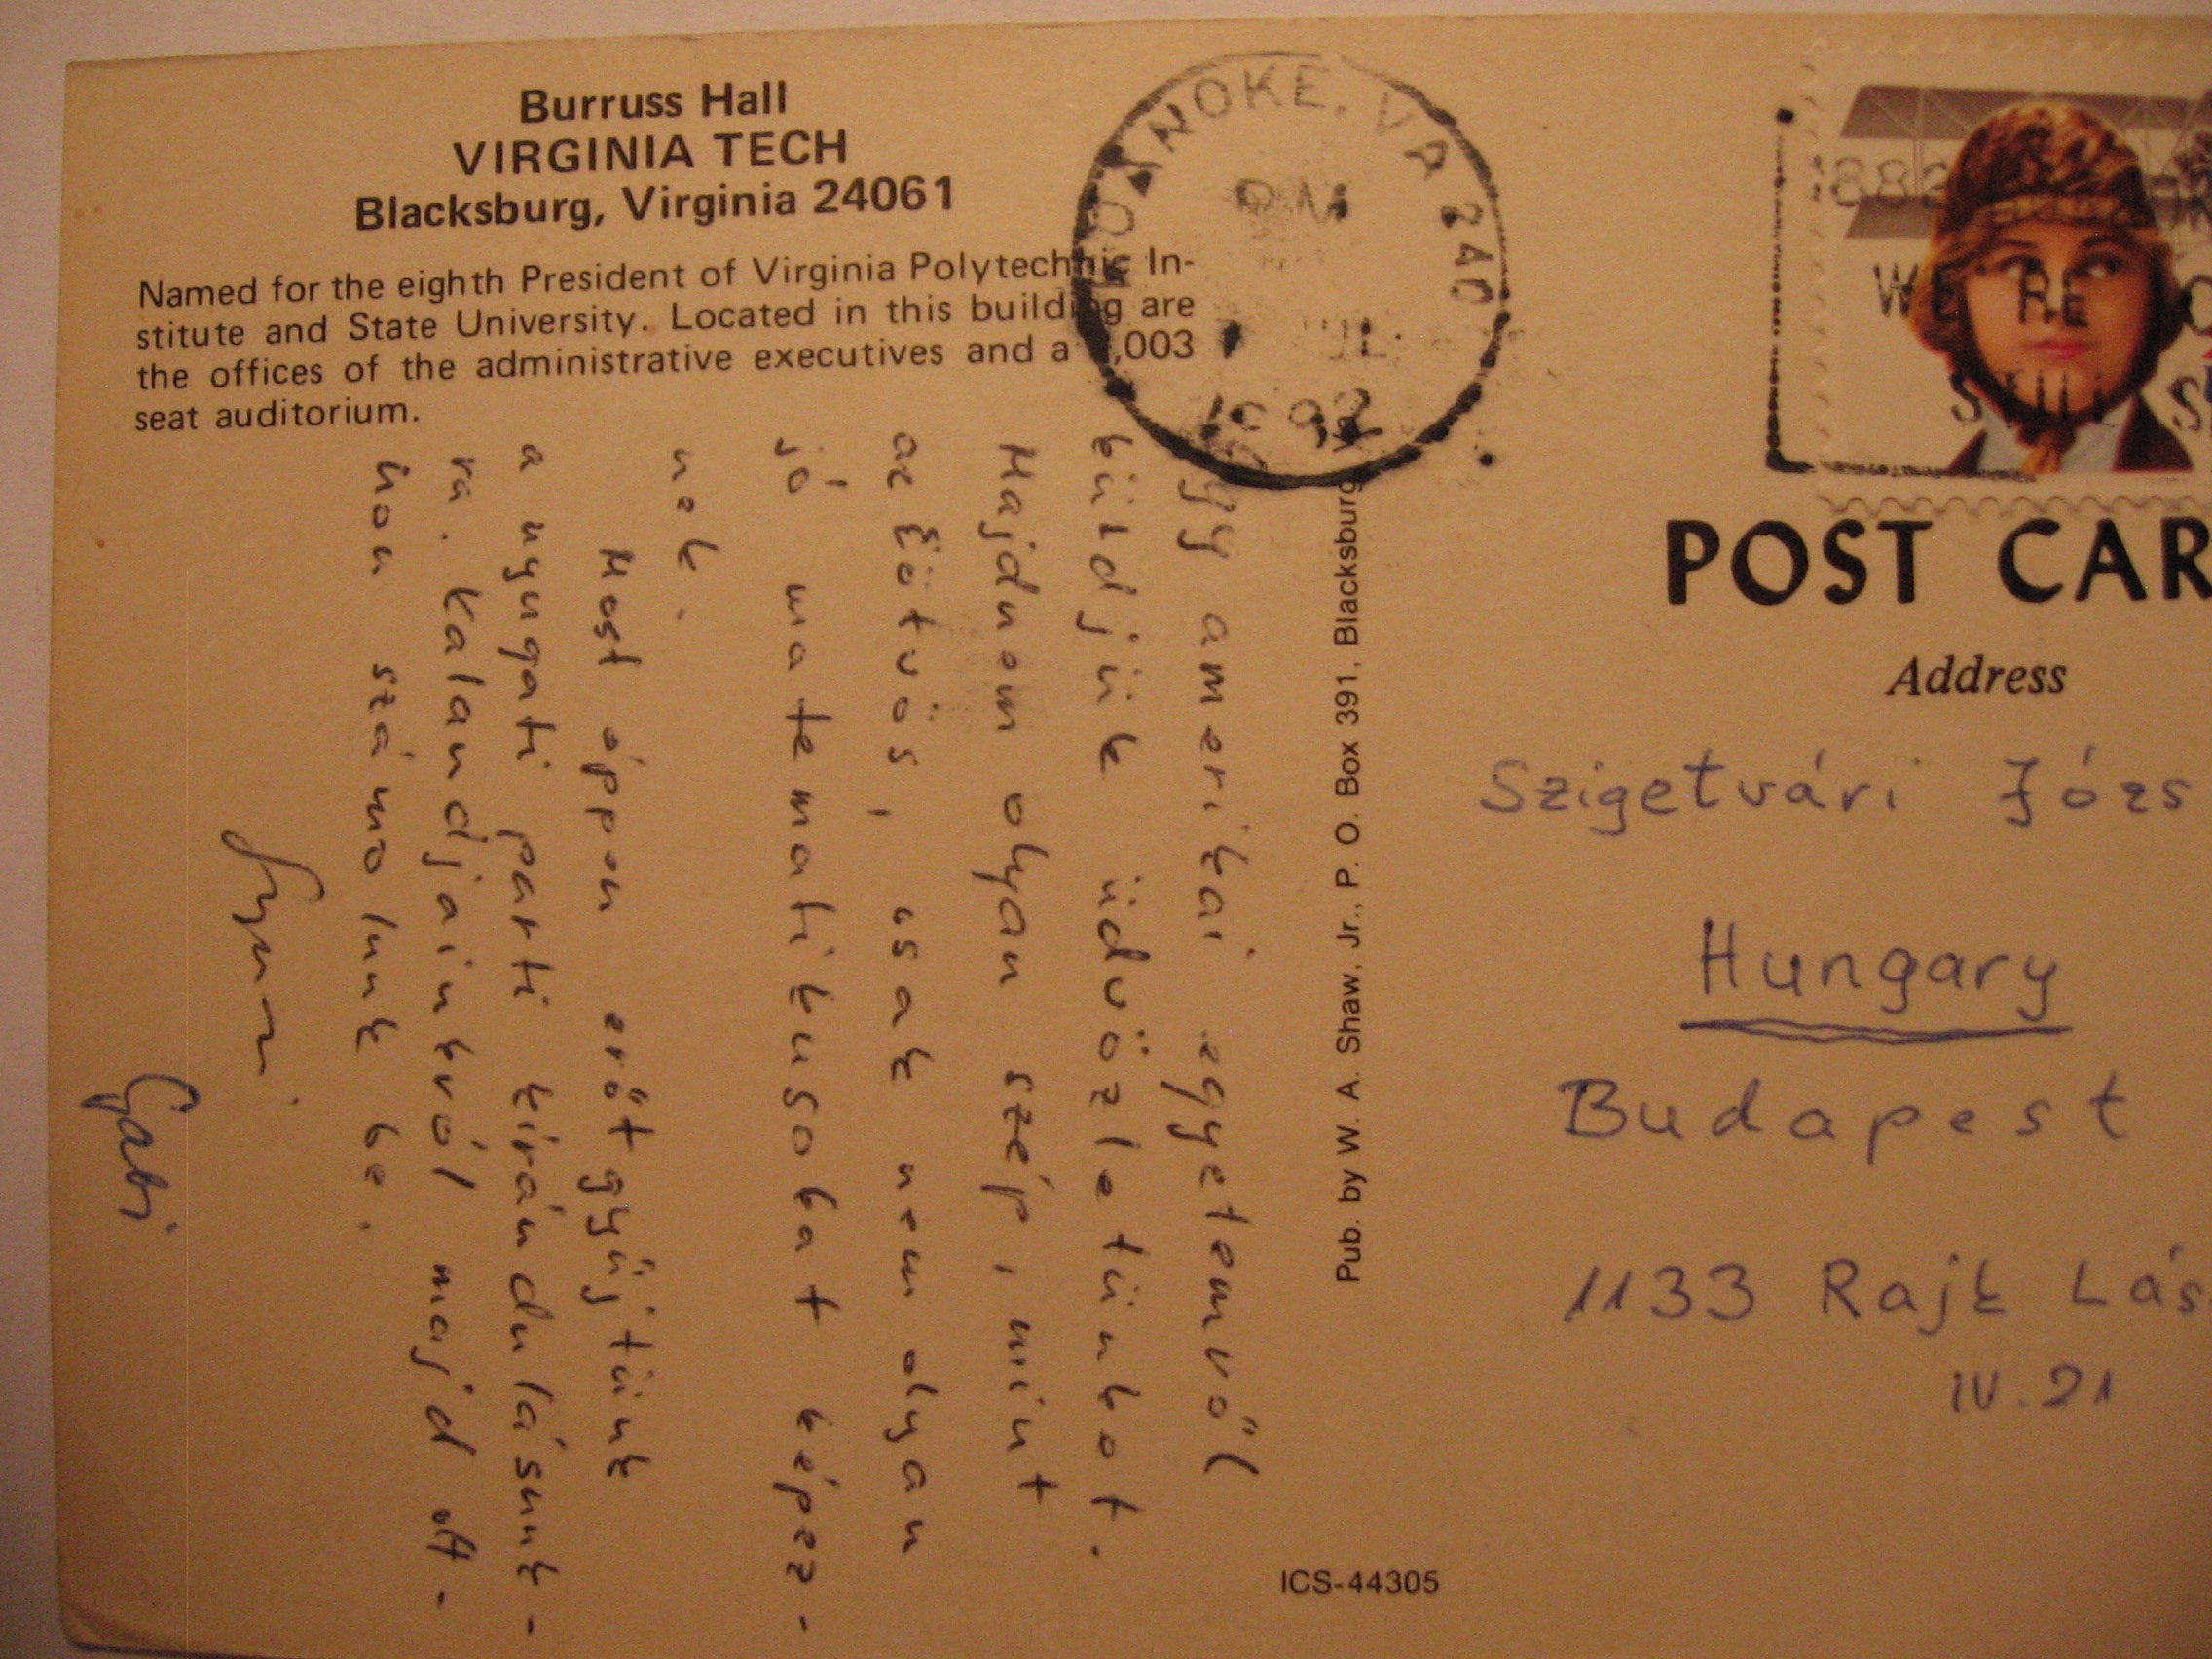 Burruss Hall
VIRGINIA TECH
Blacksburg, Virginia 24061
Named for the eighth President of Virginia Polytechnic In-
stitute and State University. Located in this building are
the offices of the administrative executives and a ,003
seat auditorium.
ROANOKE, VA 240
PM
1992
WE'RE
Still
POST CAR
Address
Szigetvári Józs
Hungary
Budapest
1133 Rajk Lás
IV. 21
Pub. by W. A. Shaw, Jr., P. O. Box 391, Blacksburg, Va.
ICS-44305
Egy amerikai egyetemről
küldjük üdvözletünket.
Majdnem olyan szép, mint
az Eötvös, csak nem olyan
jó matematikusokat képez-
nek.
Most éppen erőt gyűjtünk
a nyugati parti kirándulásunk-
ra. Kalandjainkról majd ott-
hon számolunk be.
Gyuri
Gabi